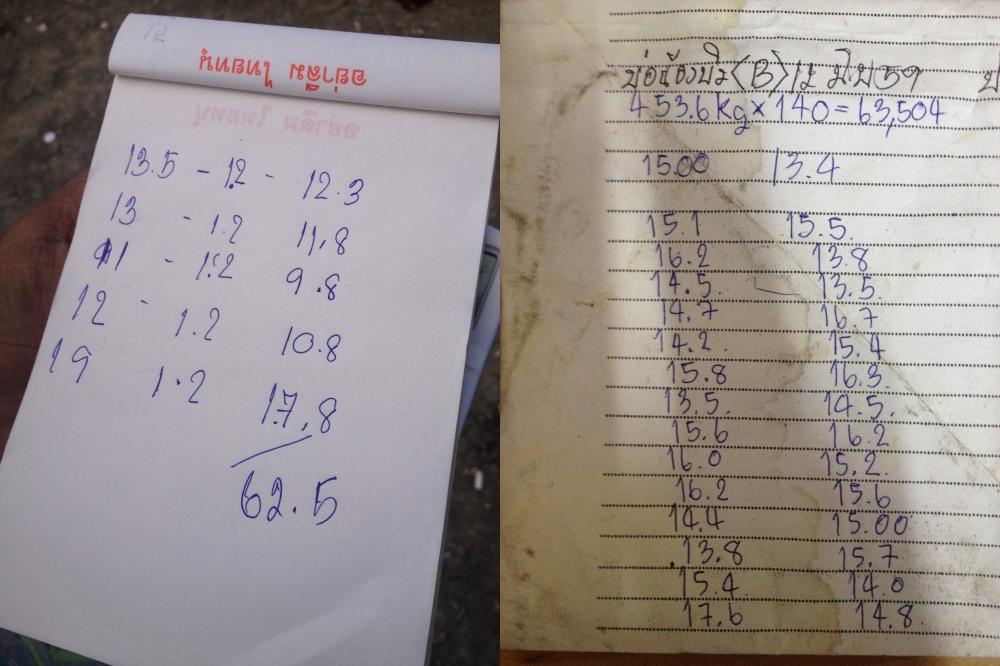 อย่าลืม ไทยทนุ
อย่าลืม ไทยทนุ
13.5 - 1.2 - 12.3
13 - 1.2 11.8
11 - 1.2 9.8
12 - 1.2 10.8
19 1.2 17.8
62.5
<B> 12 มี.ย 59
453.6 kg × 140 = 63,504
15.00 13.4
15.1 15.5
16.2 13.8
14.5 13.5
14.7 16.7
14.2 15.4
15.8 16.3
13.5 14.5
15.6 16.2
16.0 15.2
16.2 15.6
14.4 15.00
13.8 15.7
15.4 14.0
17.6 14.8